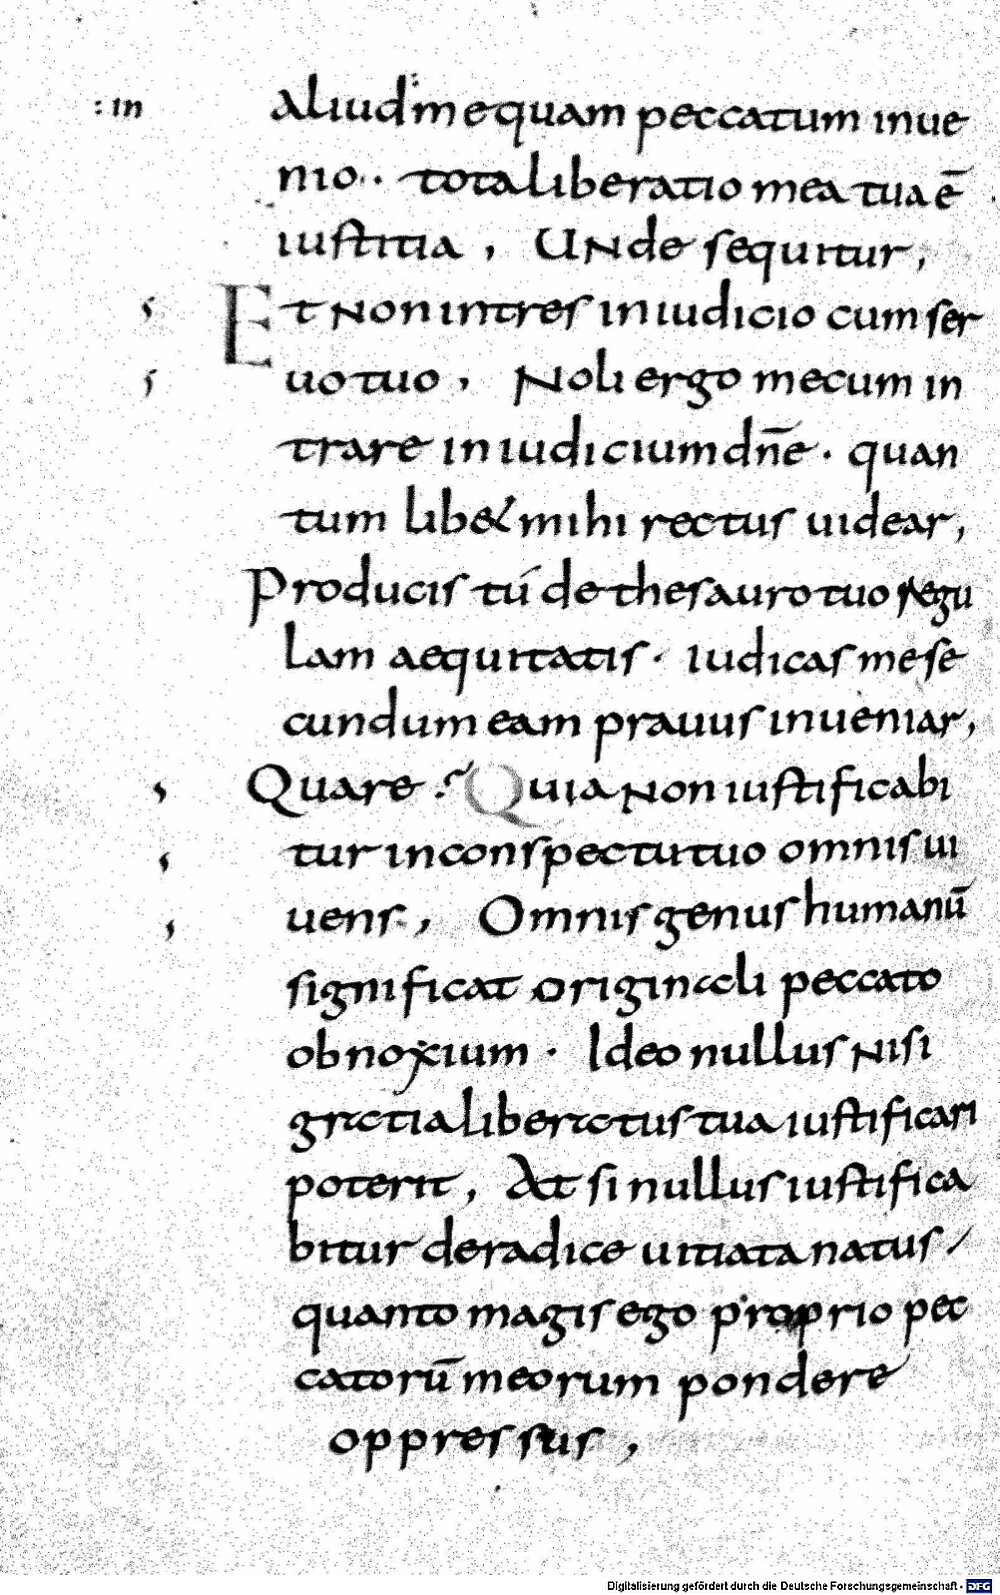 : in
aliud me quam peccatum inue
nio·· tota liberatio mea tua ē
iustitia , UNde sequitur ,
Et Non intres in iudicio cum ser
uo tuo , Noli ergo mecum in
trare in iudicium dn̄e · quan
tum lib& mihi rectus uidear ,
Producis tú de thesauro tuo regu
lam aequitatis · iudicas me se
cundum eam prauus inueniar ,
Quare ? Quia Non iustificabi
tur in conspectu tuo omnis ui
uens , Omnis genus humanū
significat originali peccato
obnoxium · Ideo nullus Nisi
gratia liberatus tua iustificari
poterit , At si nullus iustifica
bitur de radice uitiata natus /
quanto magis ego proprio pec
catorū meorum pondere
oppressus ,
Digitalisierung gefördert durch die Deutsche Forschungsgemeinschaft - DFG